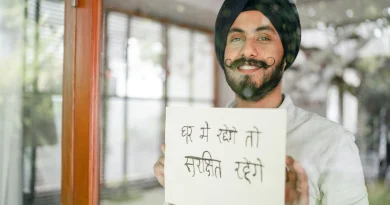 घर मे रहेगे तो
सुरक्षित रहेगे